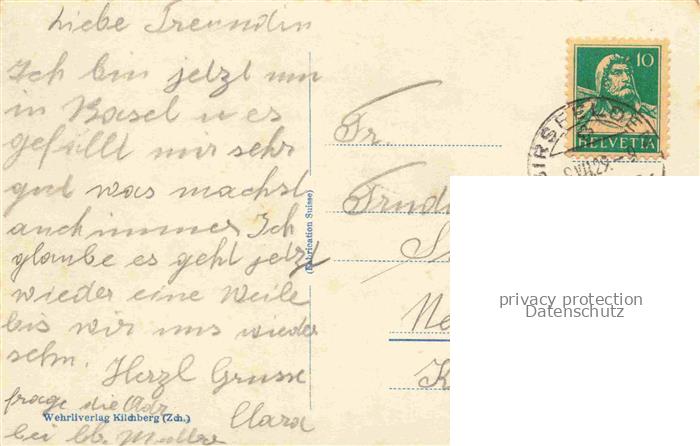 Liebe Freundin
Ich bin jetzt nun
in Basel u es
gefällt mir sehr
gut was machst
auch immer Ich
glaube es geht jetz
wieder eine Weile
bis wir uns wieder
sehn. Herzl Grusse
Clara
frage die Adr
bei
Wehrliverlag Kilchberg (Zch.)
(Fabrication Suisse)
Fr.
10
HELVETIA
BIRSFELDEN
VII.29
privacy protection
Datenschutz